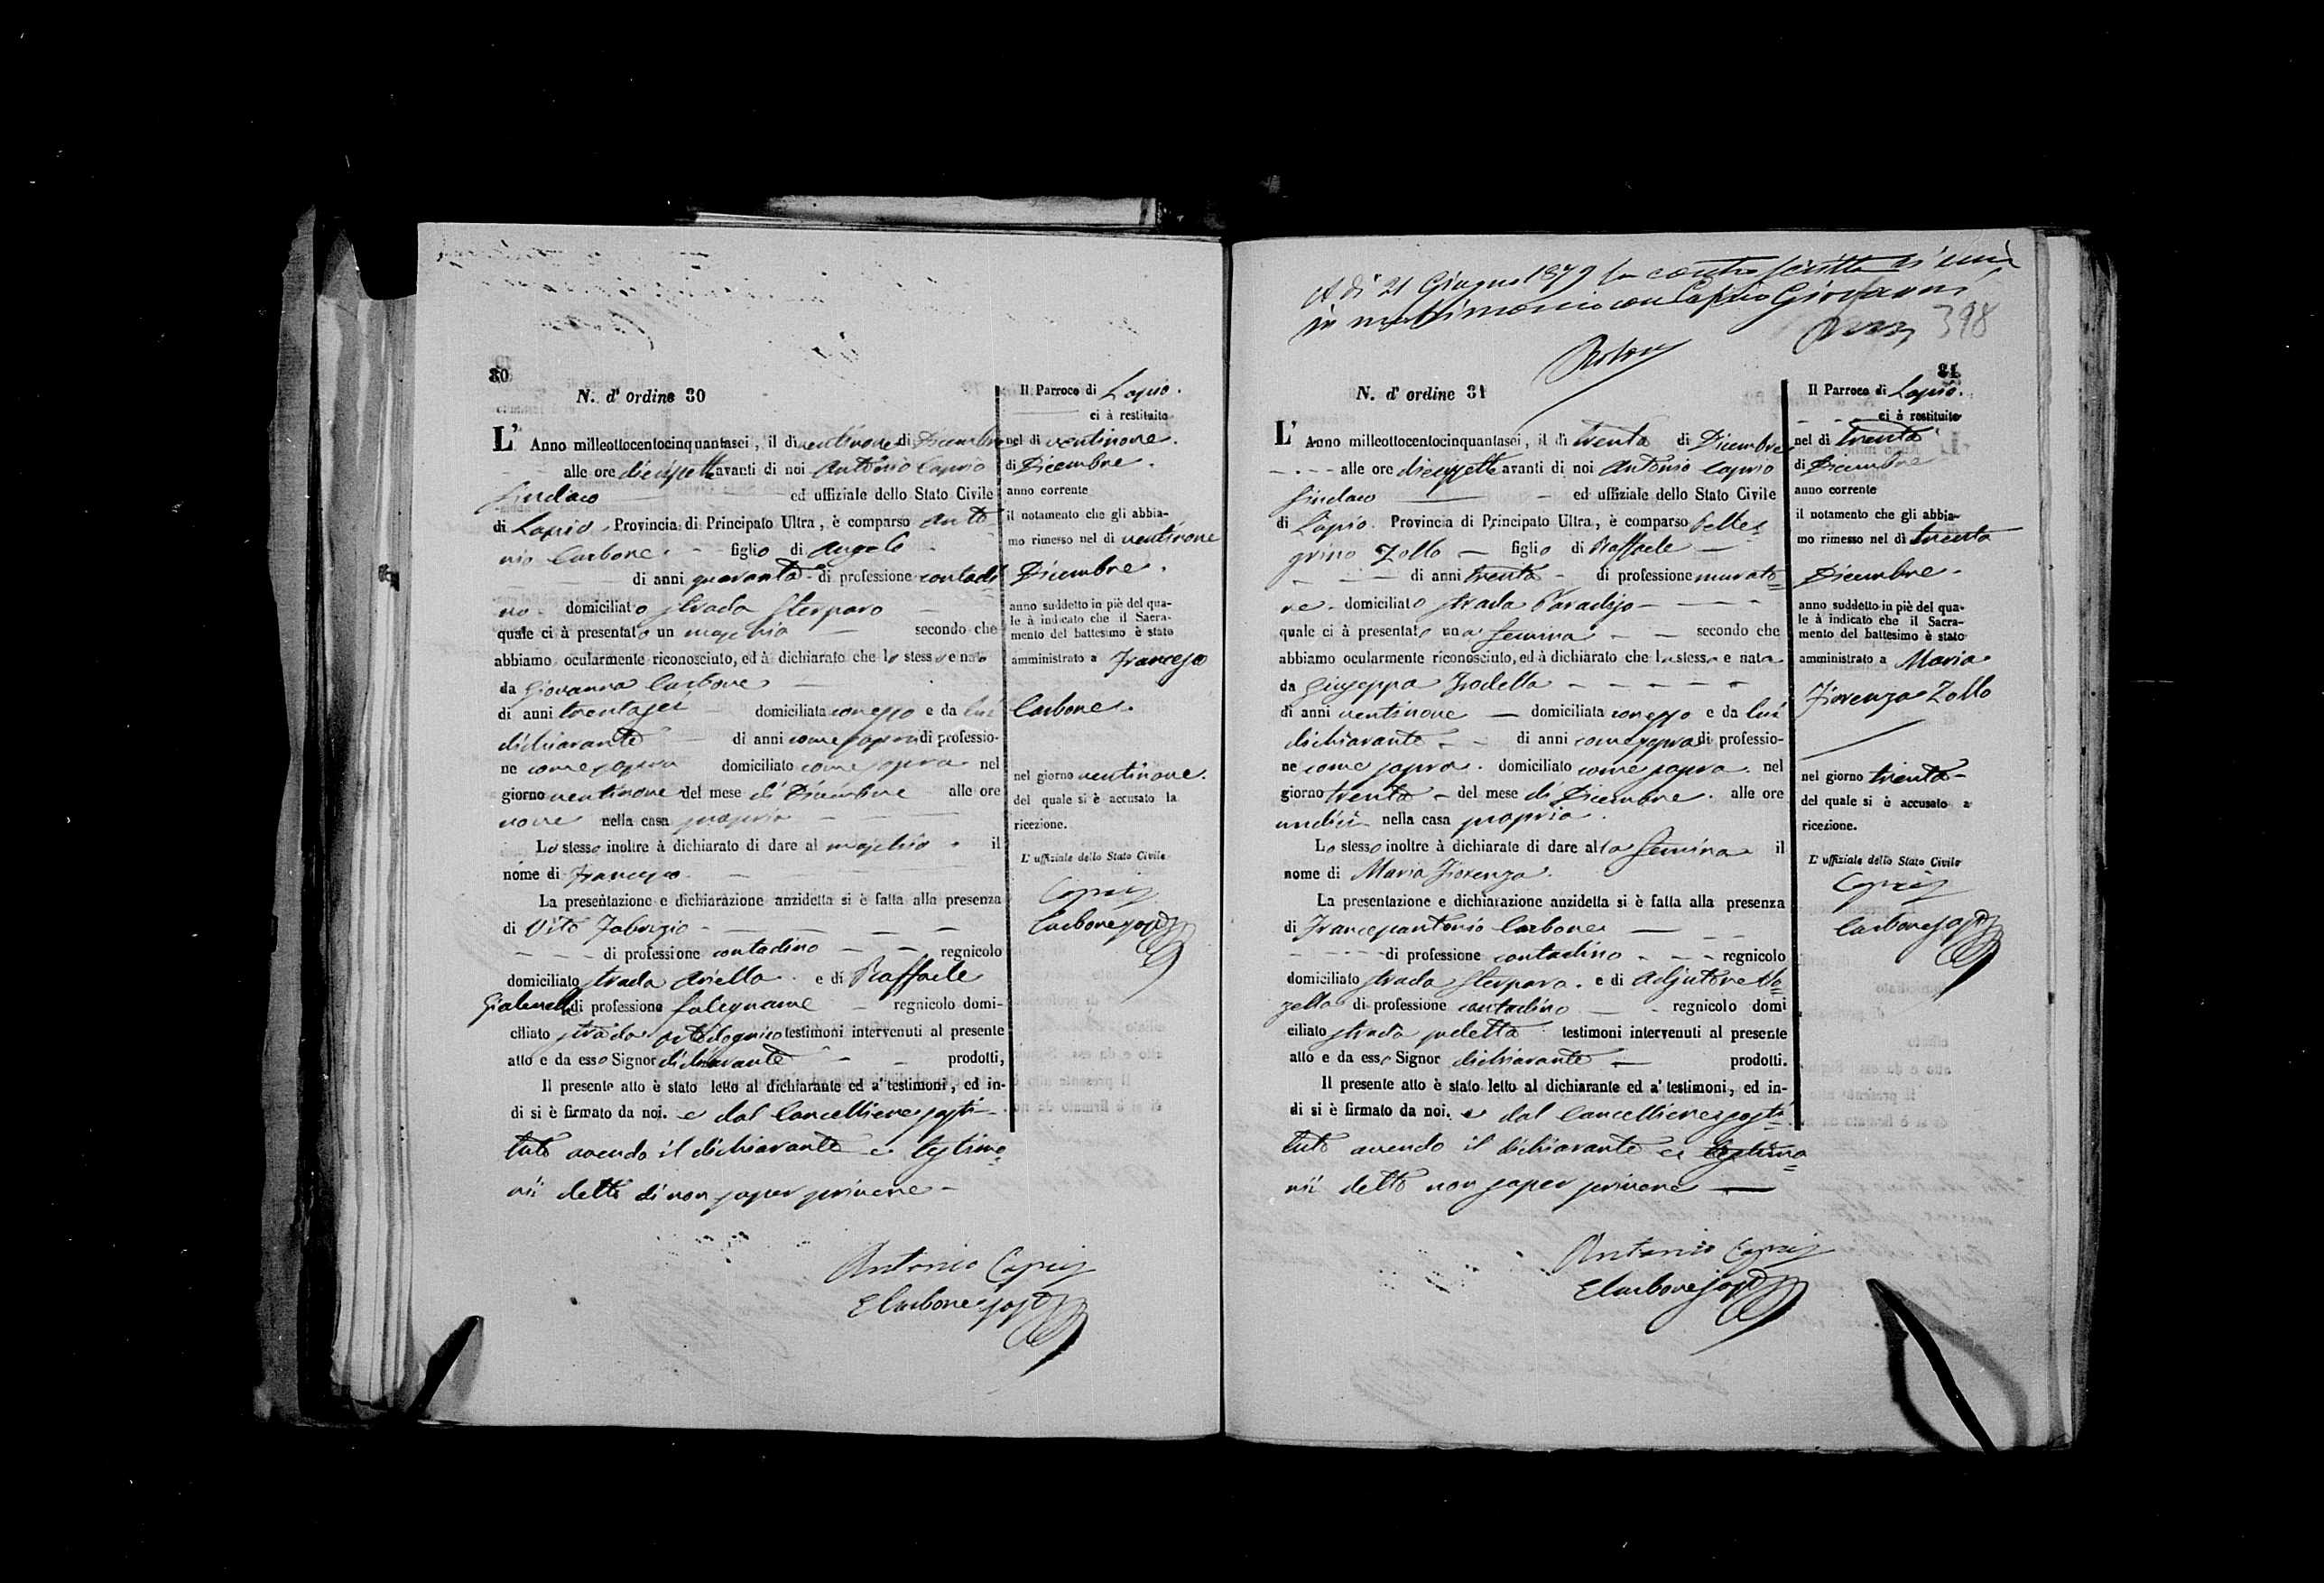 80
N. d' ordine 80
L' Anno milleottocentocinquantasei, il dì ventinove di Dicembre
alle ore diecissette avanti di noi Antonio Caprio
Sindaco ed uffiziale dello Stato Civile
di Lapio. Provincia di Principato Ultra, è comparso Anto
nio Carbone figlio di Angelo
di anni quaranta di professione contadi
no domiciliato strada Sterparo
quale ci à presentato un maschio secondo che
abbiamo ocularmente riconosciuto, ed à dichiarato che lo stesso e nato
da Giovanna Carbone
di anni trentasei domiciliata con esso e da lui
dichiarante di anni come sopra di professio-
ne come sopra domiciliato come sopra nel
giorno ventinove del mese di Dicembre alle ore
nove nella casa propria
Lo stesso inoltre à dichiarato di dare al maschio il
nome di Francesco
La presentazione e dichiarazione anzidetta si è fatta alla presenza
di Vito Fabrizio
di professione contadino regnicolo
domiciliato strada Ariella e di Raffaele
di professione falegname regnicolo domi-
ciliato strada testimoni intervenuti al presente
atto e da esso Signor dichiarante prodotti,
Il presente atto è stato letto al dichiarante ed a' testimoni, ed in-
di si è firmato da noi. e dal Cancelliere sosti-
tuto avendo il dichiarante e testimo=
nii detto di non saper scrivere
Antonio Caprio
E Carbone sosto
Il Parroco di Lapio.
ci à restituito
nel di ventinove.
di Dicembre.
anno corrente
il notamento che gli abbia-
mo rimesso nel dì ventinove
Dicembre.
anno suddetto in piè del qua-
le à indicato che il Sacra-
mento del battesimo è stato
amministrato a Francesco
Carbone.
nel giorno ventinove.
del quale si è accusato la
ricezione.
L' uffiziale dello Stato Civile
Caprio
Carbone sosto
A dì 21 Giugno 1879 la contro scritta si unì
in matrimonio con Caprio Giovanni
398
81
N. d' ordine 81
L' Anno milleottocentocinquantasei, il dì trenta di Dicembre
alle ore diecissette avanti di noi Antonio Caprio
Sindaco ed uffiziale dello Stato Civile
di Lapio. Provincia di Principato Ultra, è comparso Pelle=
grino Zollo figlio di Raffaele
di anni trenta di professione murato=
re. domiciliato strada Paradiso
quale ci à presentato una femina secondo che
abbiamo ocularmente riconosciuto, ed à dichiarato che la stessa e nata
da Giuseppa Frodella
di anni ventinove domiciliata con esso e da lui
dichiarante di anni come sopra di professio-
ne come sopra. domiciliato come sopra. nel
giorno trenta del mese di Dicembre. alle ore
undici nella casa propria.
Lo stesso inoltre à dichiarato di dare alla femina il
nome di Maria Fiorenza.
La presentazione e dichiarazione anzidetta si è fatta alla presenza
di Francesantonio Carbone
di professione contadino regnicolo
domiciliato strada Sterparo. e di Adjutore Mo=
zella di professione contadino regnicolo domi
ciliato strada testimoni intervenuti al presente
atto e da esso Signor dichiarante prodotti.
Il presente atto è stato letto al dichiarante ed a' testimoni, ed in-
di si è firmato da noi. e dal Cancelliere sosti=
tuto avendo il dichiarante e testimo=
nii detto non saper scrivere
Antonio Caprio
E Carbone sosto
Il Parroco di Lapio.
ci à restituito
nel di trenta
di Dicembre
anno corrente
il notamento che gli abbia-
mo rimesso nel dì trenta
Dicembre.
anno suddetto in piè del qua-
le à indicato che il Sacra-
mento del battesimo è stato
amministrato a Maria
Fiorenza Zollo
nel giorno trenta
del quale si è accusato a
ricezione.
L' uffiziale dello Stato Civile
Caprio
Carbone sosto